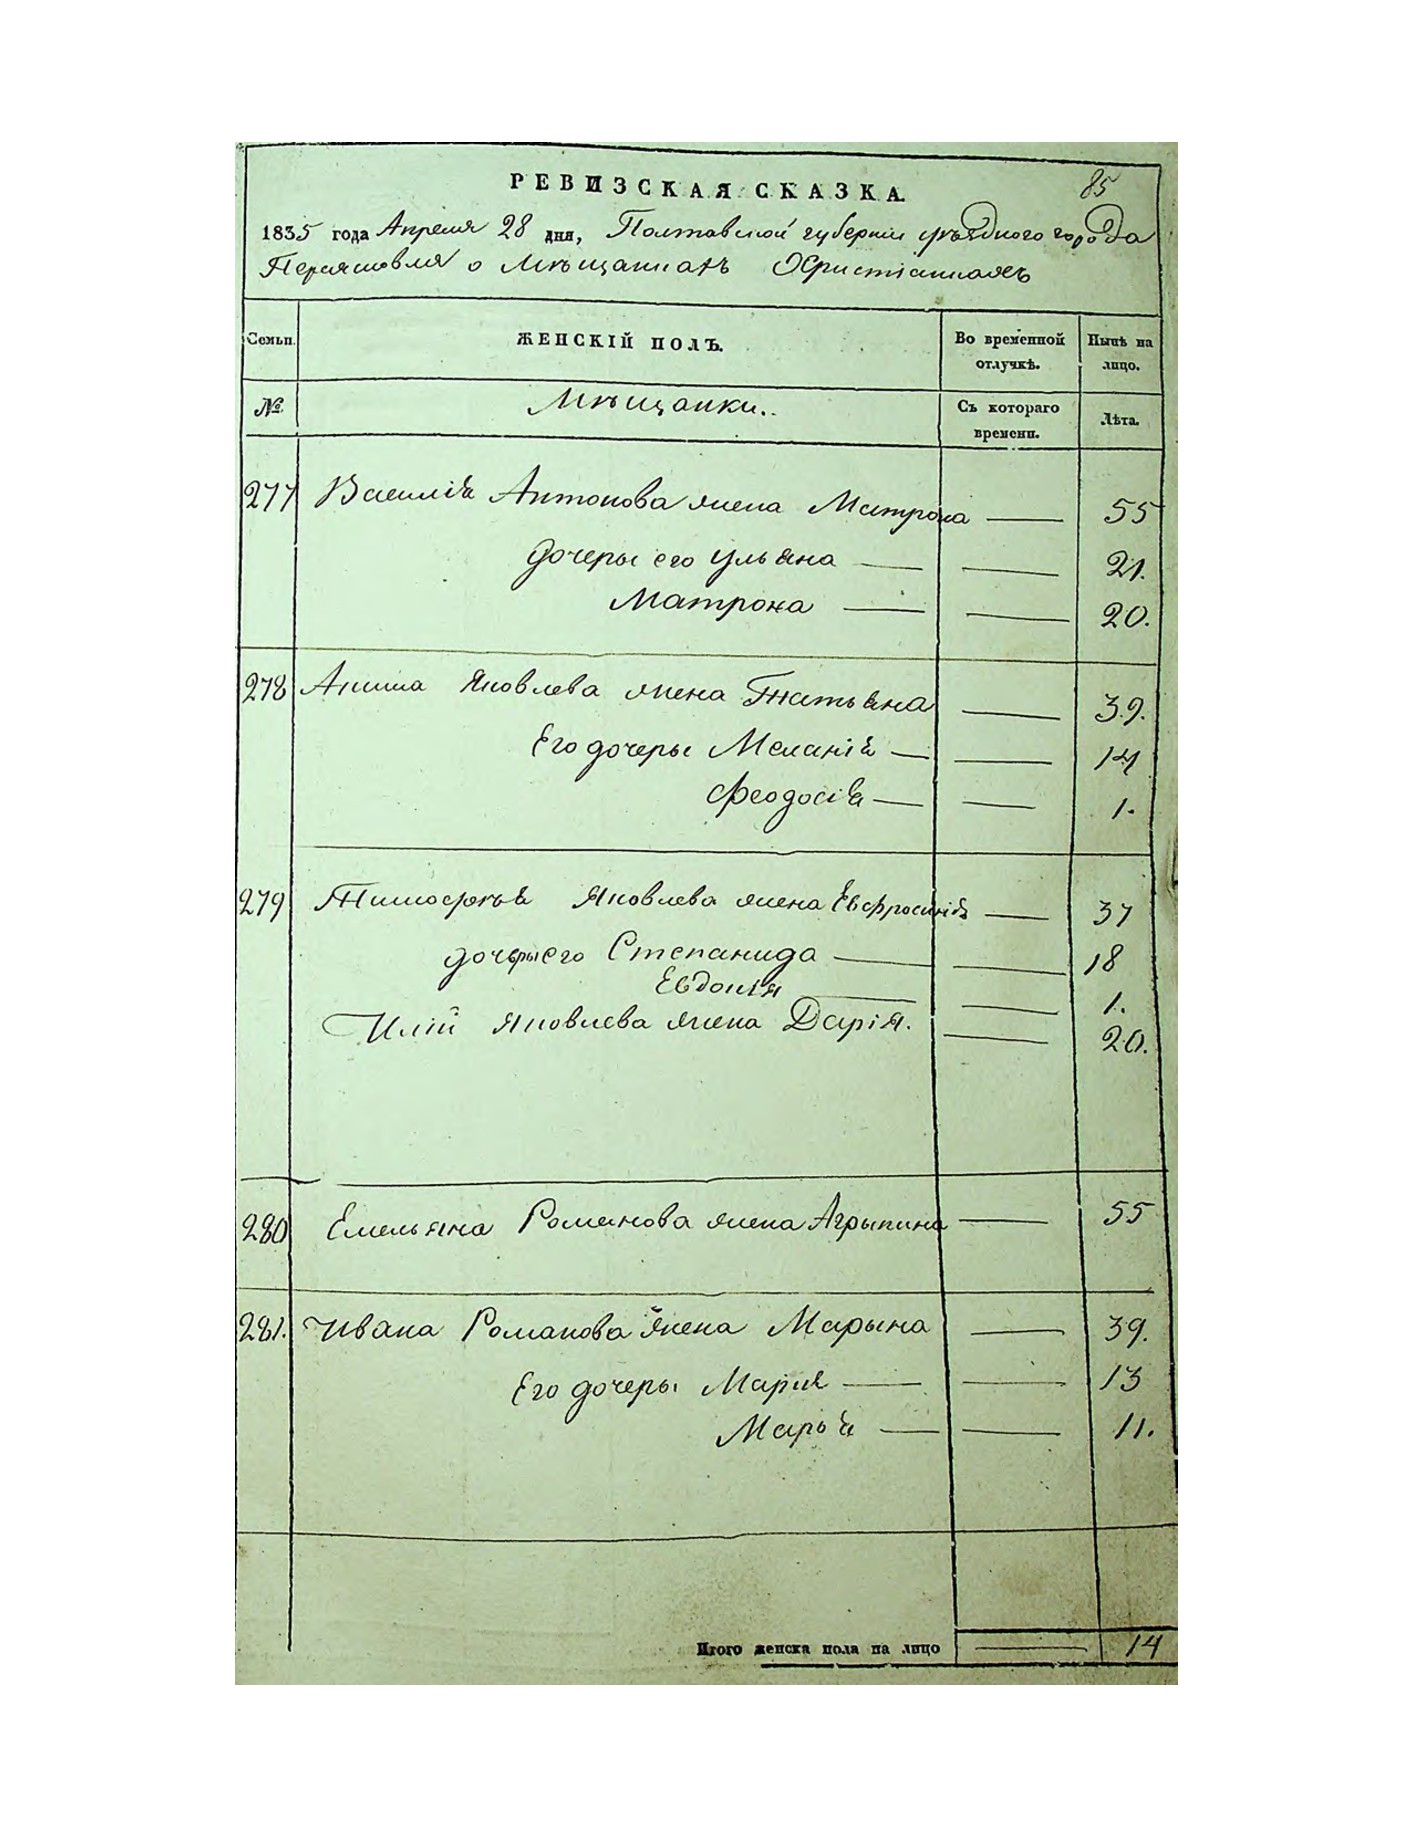 85
РЕВИЗСКАЯ СКАЗКА.
1835 года Апреля 28 дня, Полтавской губернии уѣздного города
Переяславля о Мѣщанахъ Христіанахъ
Семьи.
ЖЕНСКІЙ ПОЛЪ.
Во временной отлучкѣ.
Нынѣ на лицо.
№.
Мѣщанки..
Съ котораго времени.
Лѣта.
277 Василія Антонова жена Матрона — 55
дочеры его Ульяна — — 21.
Матрона — — 20.
278 Яковлева жена Татьяна — 39.
Его дочеры Меланія — — 14
Феодосія — — 1.
279 Тимофѣя Яковлева жена Евфросинія — 37
дочеры его Степанида — — 18
Евдокія — — 1.
Илій Яковлева жена Дарія. — 20.
280 Емельяна Романова жена Агрыпина — 55
281. Ивана Романова жена Марына — 39.
Его дочеры Мария — — 13
Марья — — 11.
Итого женска пола на лицо — 14